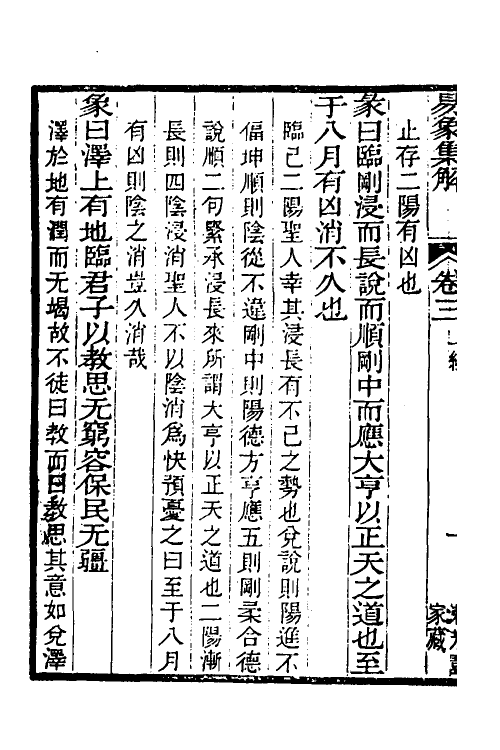 易象集解
卷三 上經
一
家藏
止存二陽有凶也
彖曰臨剛浸而長說而順剛中而應大亨以正天之道也至
于八月有凶消不久也
臨已二陽聖人幸其浸長有不已之勢也兌說則陽進不
偪坤順則陰從不違剛中則陽德方亨應五則剛柔合德
說順二句緊承浸長來所謂大亨以正天之道也二陽漸
長則四陰浸消聖人不以陰消爲快預憂之曰至于八月
有凶則陰之消豈久消哉
象曰澤上有地臨君子以教思无窮容保民无疆
澤於地有潤而无竭故不徒曰教而曰教思其意如兌澤